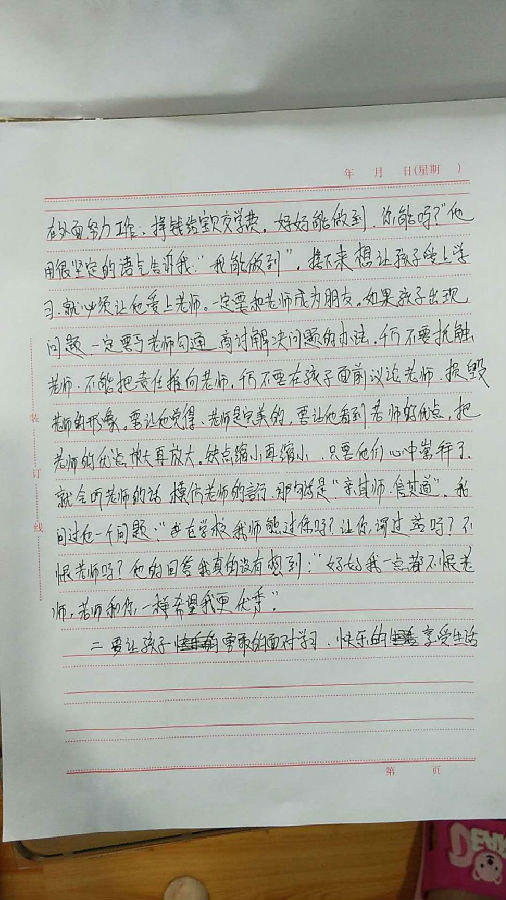 年 月 日(星期 )
在外面努力工作、挣钱给宝贝交学费。好好能做到，你能吗？"他
用很坚定的语气告诉我："我能做到"。接下来想让孩子爱上学
习，就必须让他爱上老师。一定要和老师成为朋友。如果孩子出现
问题，一定要与老师勾通，商讨解决问题的办法。千万不要抵触
老师，不能把责任推向老师，千万不要在孩子面前议论老师，损毁
老师的形象。要让他觉得、老师是完美的，要让他看到老师的优点，把
老师的优点放大再放大。缺点缩小再缩小，只要他们心中崇拜了，
就会听老师的话，模仿老师的言行，那句话是"亲其师，信其道"。我
问过他一个问题："在学校老师 过你吗？让你 过 吗？不
恨老师吗？他的回答我真的没有想到："好好我一点都不恨老
师，老师和你一样希望我更优秀。"
二 要让孩子 的面对学习，快乐的 享受生活
装
订
线
第 页